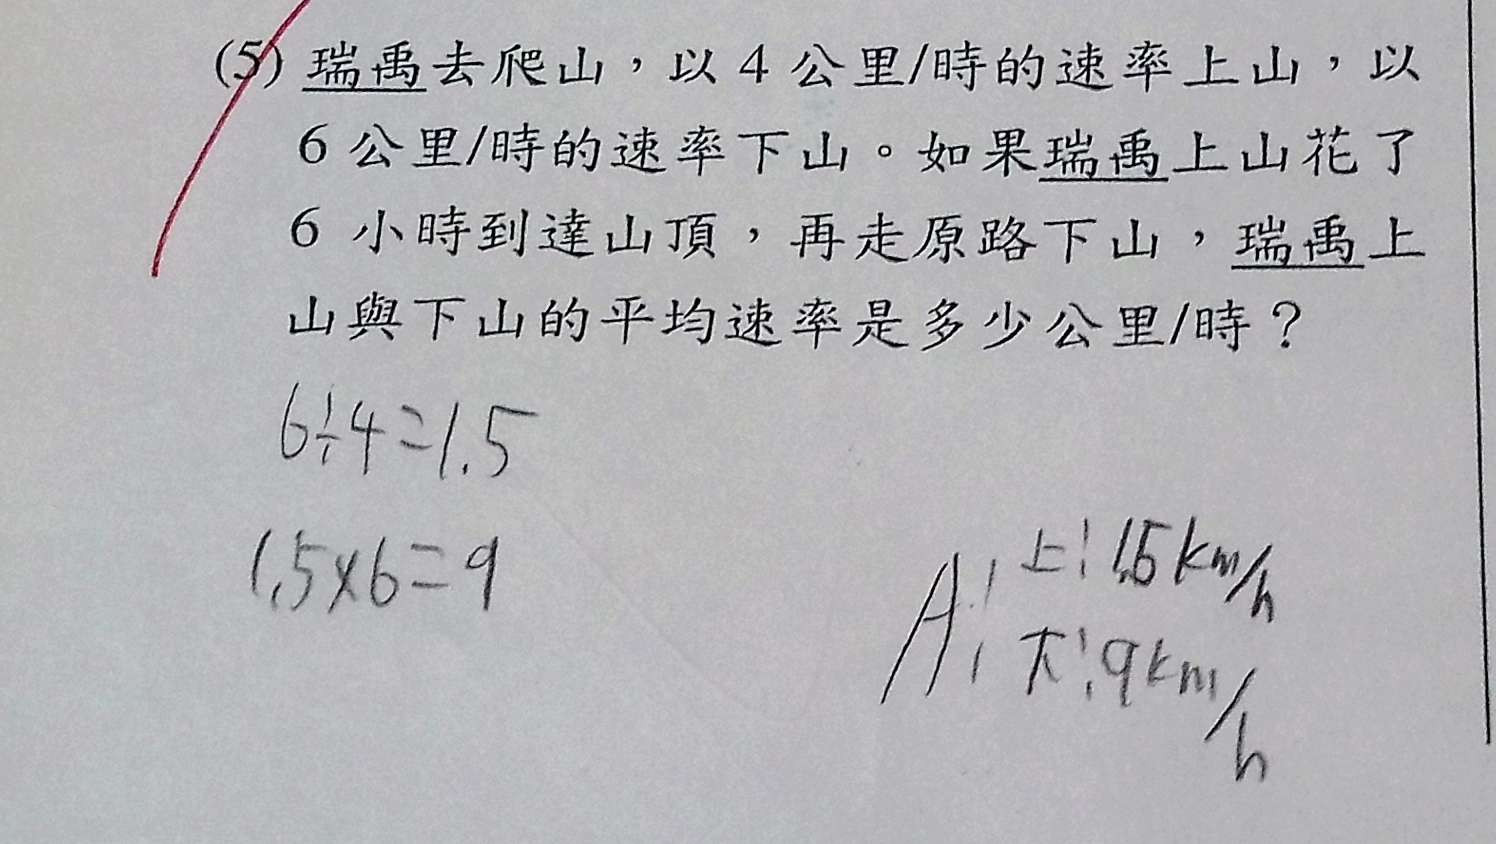 (5) 瑞禹去爬山，以 4 公里/時的速率上山，以
6 公里/時的速率下山。如果瑞禹上山花了
6 小時到達山頂，再走原路下山，瑞禹上
山與下山的平均速率是多少公里/時？
6÷4=1.5
1.5×6=9
A: 上:1.5km/h
下:9km/h